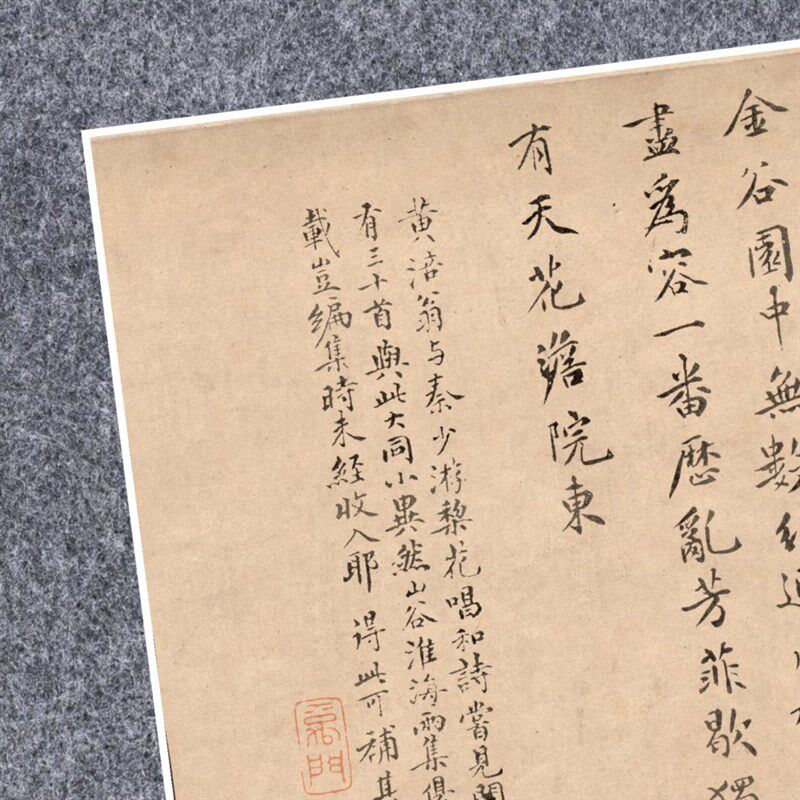 金谷園中無數
盡爲容一番厯亂芳菲歇獨
有天花院東
黄涪翁与秦少游梨花唱和詩嘗見
有三十首與此大同小異然山谷淮海兩集俱
載豈編集時未經收入耶 得此可補其